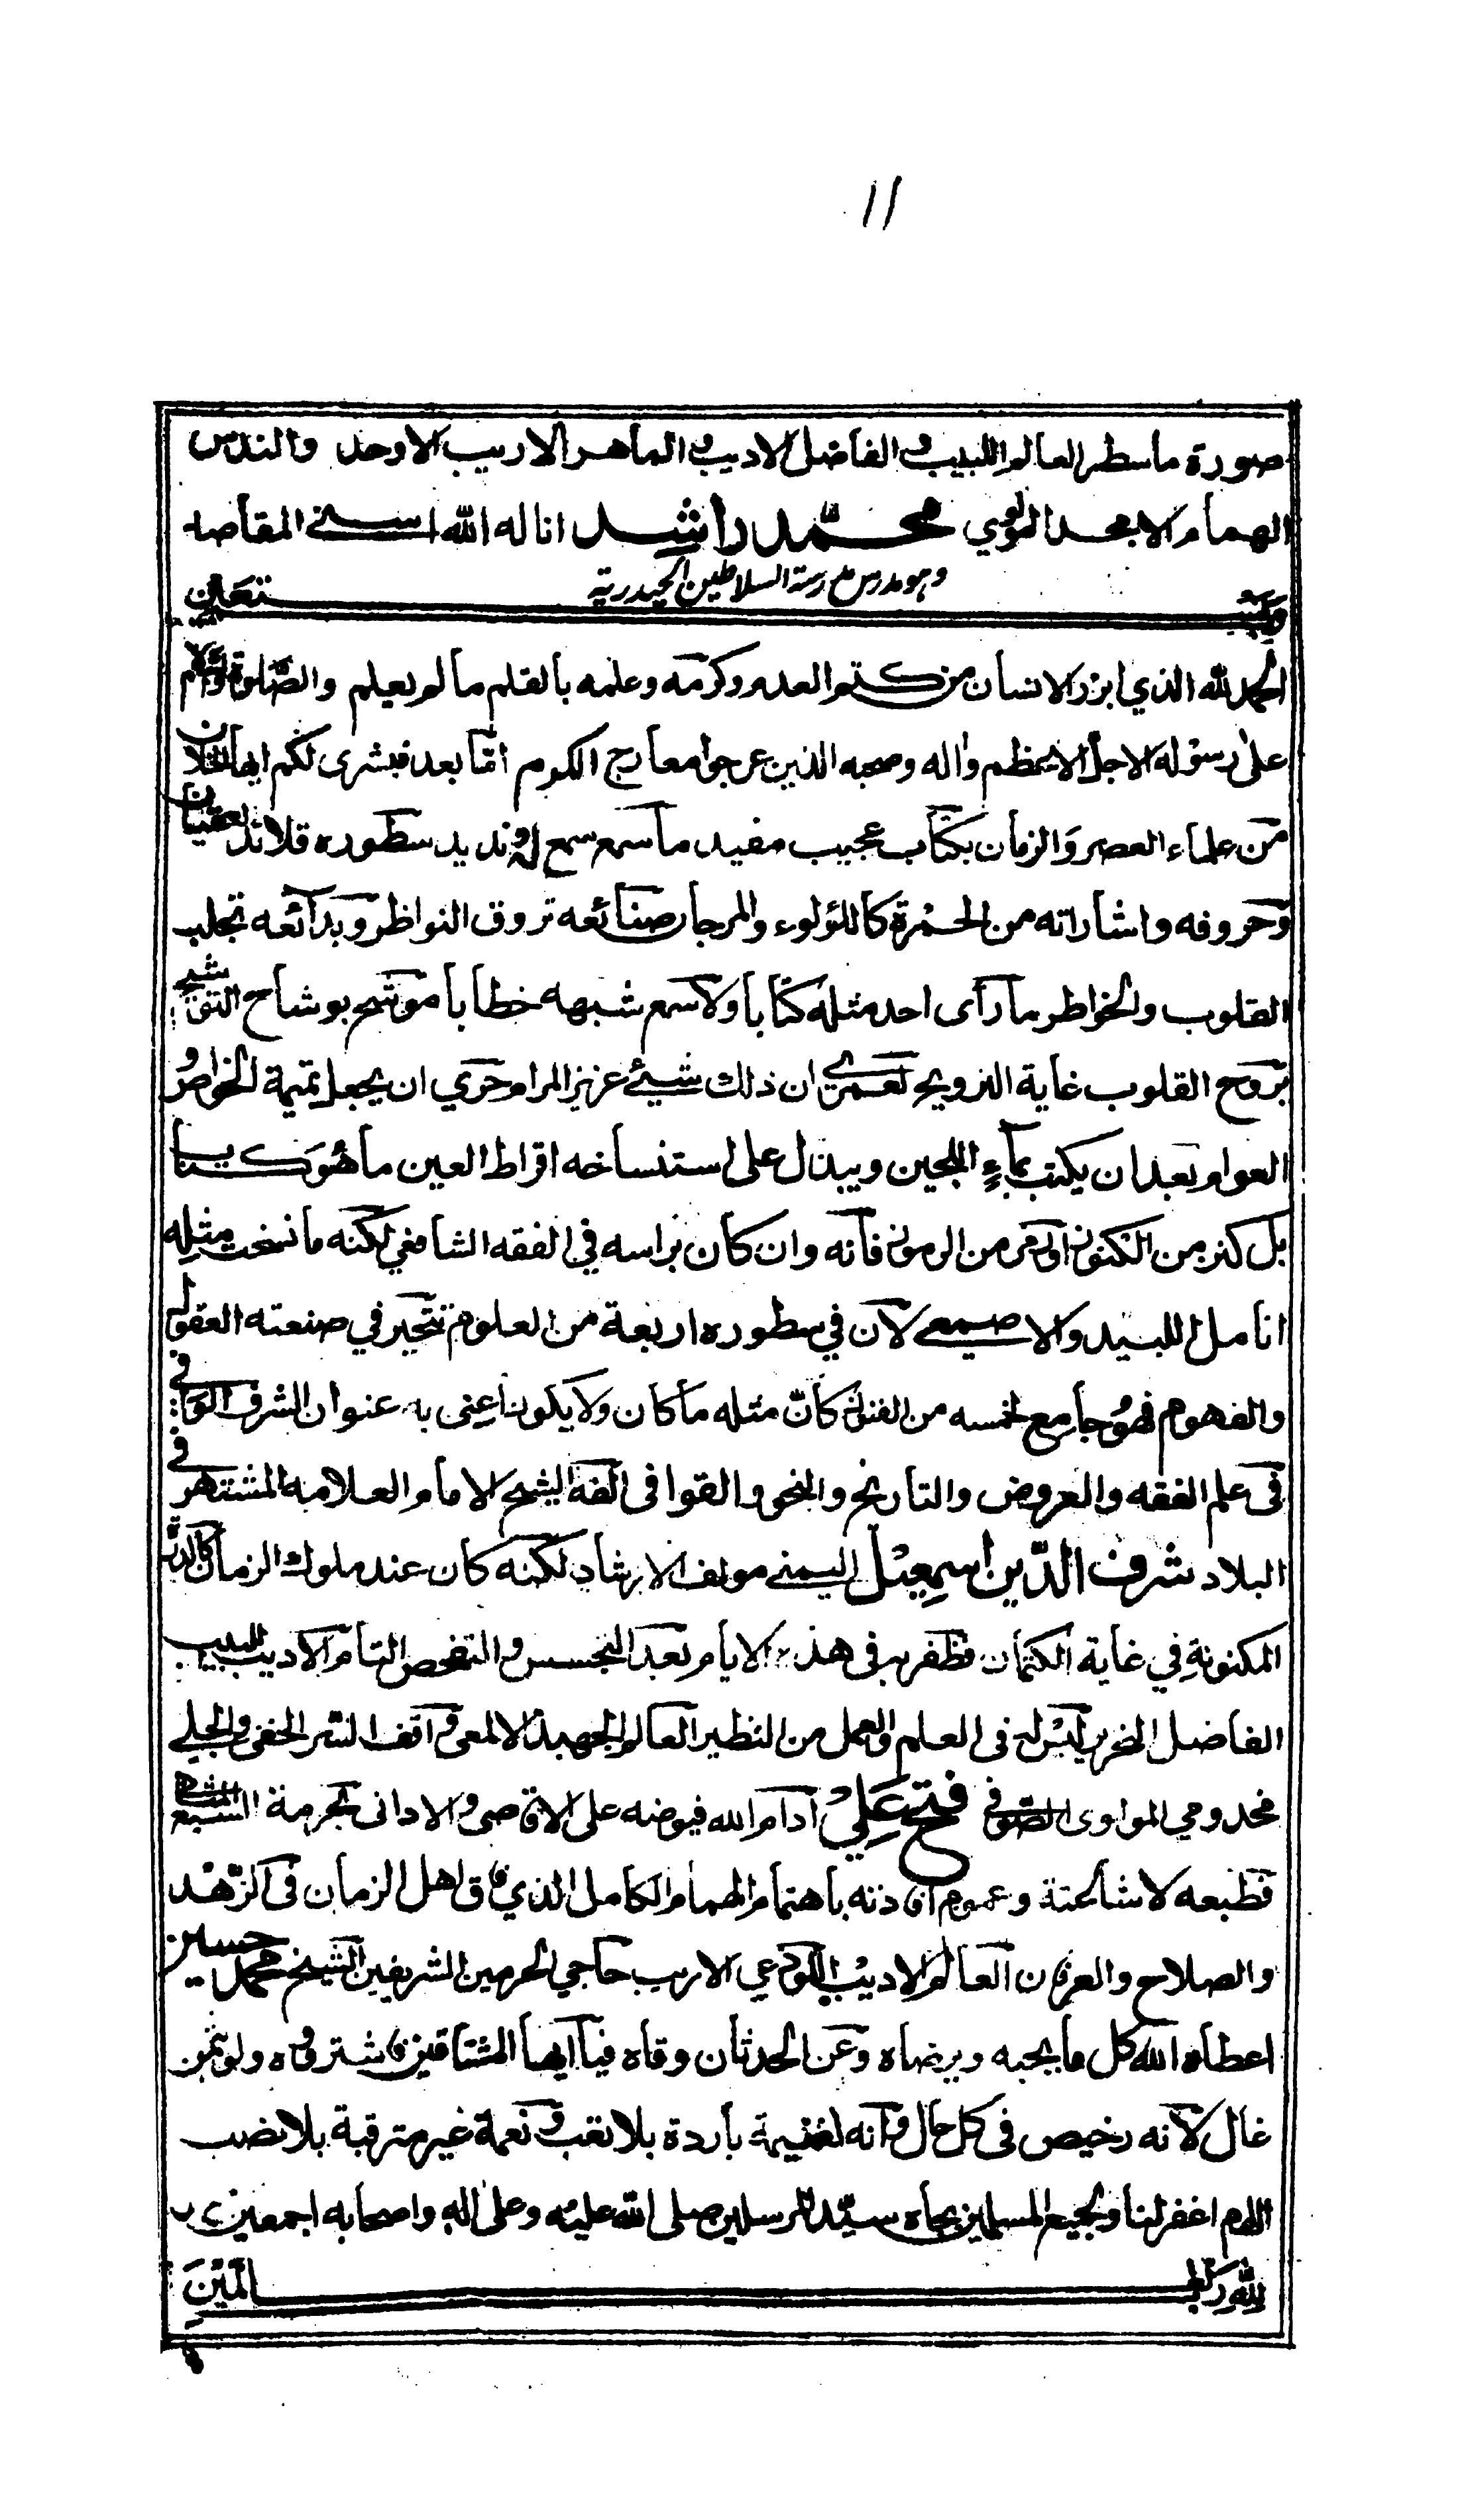 ١١
صورة ما سطر العالم اللبيب و الفاضل الاديب و الماهر الاريب الاوحد والندس
الهمام الامجد المولوي محمّد راشد اناله الله اسنى المقاصد
وهو مدرس مدرسة السلاطين الحيدرية
وبه نستعين
الحمد لله الذي ابرز الانسان من كتم العدم وكرمه وعلمه بالقلم ما لم يعلم والصّلوة والسّلام
على رسوله الاجل الاعظم واله وصحبه الذين عرجوا معارج الكرم امّا بعد فبشرى لكم ايها الخلان
من علماء العصر والزمان بكتاب عجيب مفيد ما سمع سمع له نديد سطوره قلائد العقيان
وحروفه واشاراته من الحمرة كاللؤلوء والمرجان صنائعه تروق النواظر وبدائعه تجلب
القلوب والخواطر ما رأى احد مثله كتابا ولا سمع شبهه خطابا موشح بوشاح التوشيح
يروح القلوب غاية الترويح لعمري ان ذلك شيئ عزيز المرام حري ان يجعل تميمة الخواص و
العوام بعد ان يكتب بماء اللجين ويبذل على استنساخه اقراط العين ما هو كتاب
بل كنز من الكنوز او رمز من الرموز فانه وان كان براسه في الفقه الشافعي لكنه ما نسخت مثله
انامل اللبيد والاصمعي لان في سطوره اربعة من العلوم تتحير في صنعته العقول
والفهوم فهو جامع لخمسه من الفنون كانّ مثله ما كان ولا يكون اعني به عنوان الشرف الوافي
في علم الفقه والعروض والتاريخ والنحو والقوافى الفه الشيخ الامام العلامة المشتهر في
البلاد شرف الدّين اسمعيل اليمني مولف الارشاد لكنه كان عند ملوك الزمان كالدرّة
المكنونة في غاية الكتمان فظفر به في هذه الايام بعد التجسس و التفحص التام الاديب اللبيب
الفاضل النحرير ليس له فى العلم والعمل من النظير العالم الجهبذ الالمعي واقف السّر الخفى والجلي
مخدومي المولوى الصّوفي فتح علي ادام الله فيوضه على الاقاصى و الادانى بحرمة السبع المثاني
فطبعه لاشاعته وعموم افادته باهتمام الهمام الكامل الذي فاق اهل الزمان فى الزّهد
والصلاح والعرفان العالم الاديب اللوذعي الاريب حاجي الحرمين الشريفين الشيخ محمد حسين
اعطاه الله كل ما يحبه ويرضاه وعن الحدثان وقاه فيا ايها المشتاقين فاشتروه ولو بثمن
غال لانه رخيص فى كل حال وانه لغنيمة باردة بلا تعب و نعمة غير مترقبة بلا نصب
اللهم اغفر لنا ولجميع المسلمين بجاه سيّد المرسلين صلى الله عليه وعلى اله واصحابه اجمعين
لله رب العلمين